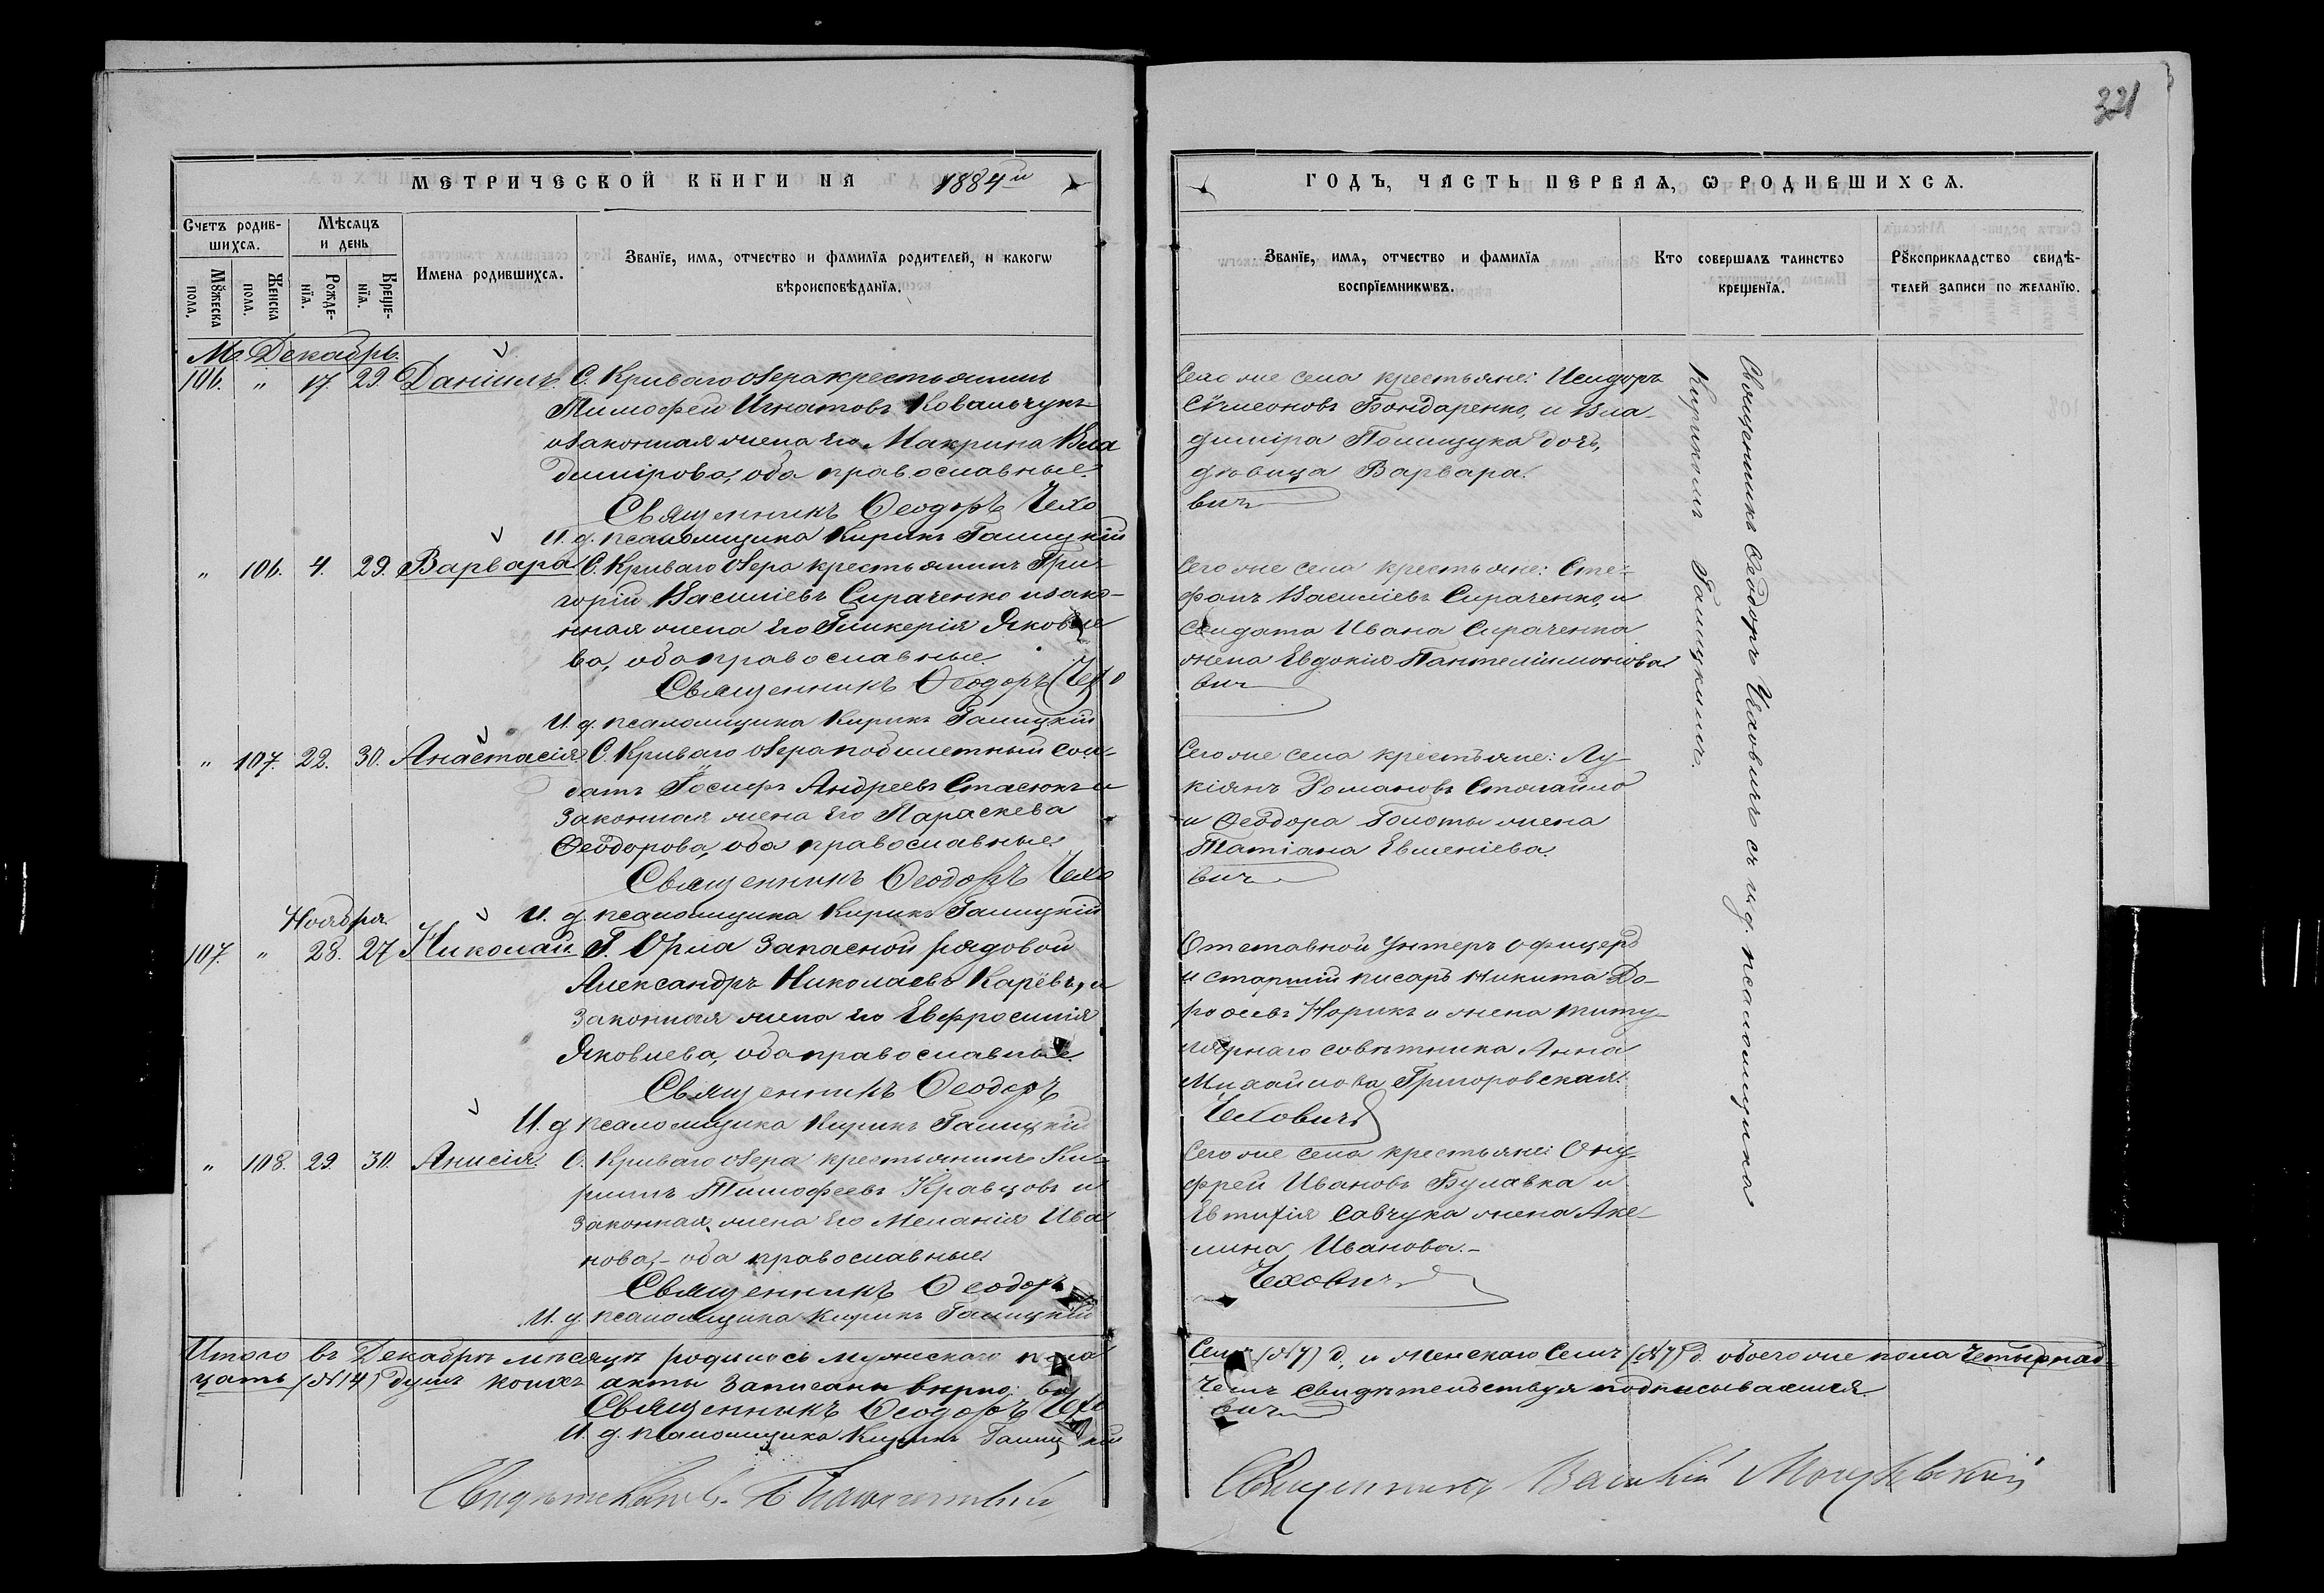 321
МЕТРИЧЕСКОЙ КНИГИ НА 1884й
ГОДЪ, ЧАСТЬ ПЕРВАѦ, Ѡ РОДИВШИХСѦ.
Счетъ родив-
шихсѧ.
Мѣсѧцъ
и день
Мꙋжеска
пола,
Женска
пола.
Рожде-
нїѧ.
Креще-
нїѧ.
Имена родившихсѧ.
Званїе, имѧ, отчество и фамилїѧ родителей, и какогѡ
вѣроисповѣданїѧ.
Званїе, имѧ, отчество и фамилїѧ
воспрїемникѡвъ.
Кто совершалъ таинство
крещенїѧ.
Рꙋкоприкладство свидѣ-
телей записи по желанїю.
Мц. Декабрь.
106. " 17. 29. Даніилъ. С. Криваго озера крестьянинъ
Тимофей Игнатовъ Ковальчукъ
и законная жена его Макрина Вла
димірова, оба православные.
Священникъ Ѳеодоръ Чехо
И. д. псаломщика Кирикъ Галицкій
Сего же села крестьяне: Исидоръ
Сѵмеоновъ Бондаренко, и Вла-
диміра Полищука дочь,
дѣвица Варвара.
вичъ
" 106. 4. 29. Варвара С. Криваго озера крестьянинъ Гри-
горій Василіевъ Сираченко и зако-
нная жена его Гликерія Яковле
ва, оба православные.
Священникъ Ѳеодоръ Чехо
И. д. псаломщика Кирикъ Галицкій
Сего же села крестьяне: Сте-
фанъ Василіевъ Сираченко, и
Солдата Ивана Сираченка
жена Евдокія Пантелиімонова
вичъ
" 107. 22. 30. Анастасія С. Криваго озера под билетный сол-
датъ Іосифъ Андреевъ Стасюкъ и
законная жена его Параскева
Ѳеодорова, оба православные.
Священникъ Ѳеодоръ Чехо
И. д. псаломщика Кирикъ Галицкій
Сего же села крестьяне: Лу-
кіянъ Романовъ
и Ѳеодора Голоты жена
Татіана Евменіева.
вичъ
Ноября.
107. " 28. 27 Николай. Г. Орла Запасной рядовой
Александръ Николаевъ Карёвъ, и
законная жена его Евфросинія
Яковлева, оба православные.
Священникъ Ѳеодоръ
И. д. псаломщика Кирикъ Галицкій
Отставной Унтеръ Офицеръ
и старшій писарь Никита До-
роѳеевъ Норикъ и жена титу-
лярнаго совѣтника Анна
Михайлова Григоровская.
Чеховичъ
" 108. 29. 30. Анисія. С. Криваго озера крестьянинъ Ки-
риллъ Тимофеевъ Кравцовъ и
законная жена его Меланія Ива
нова, - оба православные.
Священникъ Ѳеодоръ
И. д. псаломщика Кирикъ Галицкій
Сего же села крестьяне: Ону-
фрей Ивановъ Булавка и
Евтихія Савчука жена Аке-
лина Иванова. -
Чеховичъ
Священникъ Ѳеодоръ Чеховичъ съ и. д. псаломщика
Кирикомъ Галицкимъ.
Итого въ Декабрѣ мѣсяцѣ родилось мужескаго пола Семь (№7) д. и женскаго Семь (№7) д. обоего же пола Четырнад-
цать (№14) душъ коихъ акты записаны вѣрно: въ чемъ свидѣтельствуя подписываемся.
Священникъ Ѳеодоръ Чехо
вичъ
И. д. псаломщика Кирикъ Галицкій
Священникъ Василій